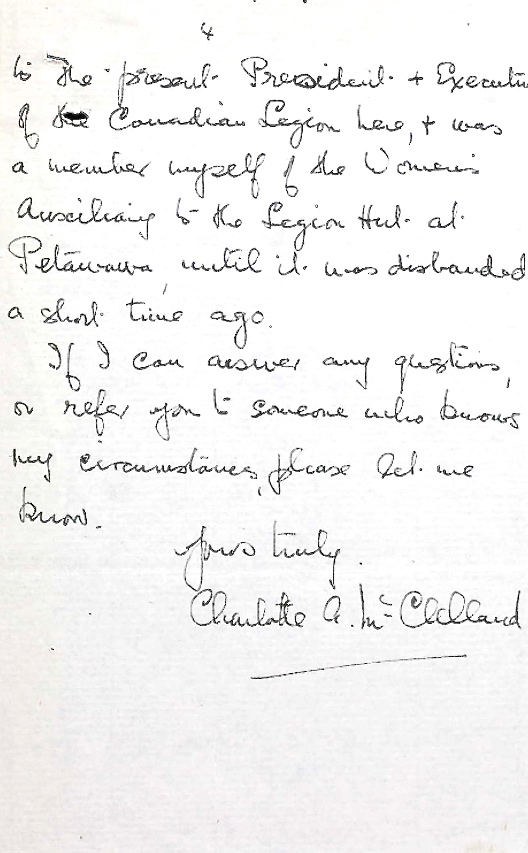 4
to the present President + Executiv
of the Canadian Legion here, + was
a member myself of the Women's
Auxiliary to the Legion Hut at
Petawawa, until it was disbanded
a short time ago.
If I can answer any questions,
or refer you to someone who knows
my circumstances, please let me
know.
Yours truly.
Charlotte A. McClelland